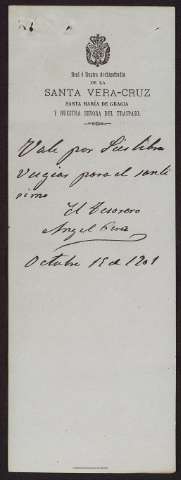 Real é Ilustre Archicofradía
DE LA
SANTA VERA-CRUZ
SANTA MARÍA DE GRACIA
Y NUESTRA SEÑORA DEL TRASPASO.
Vale por Seis libra
vugias para el santi
simo
El Tesorero
Angel
Octubre 15 de 1901